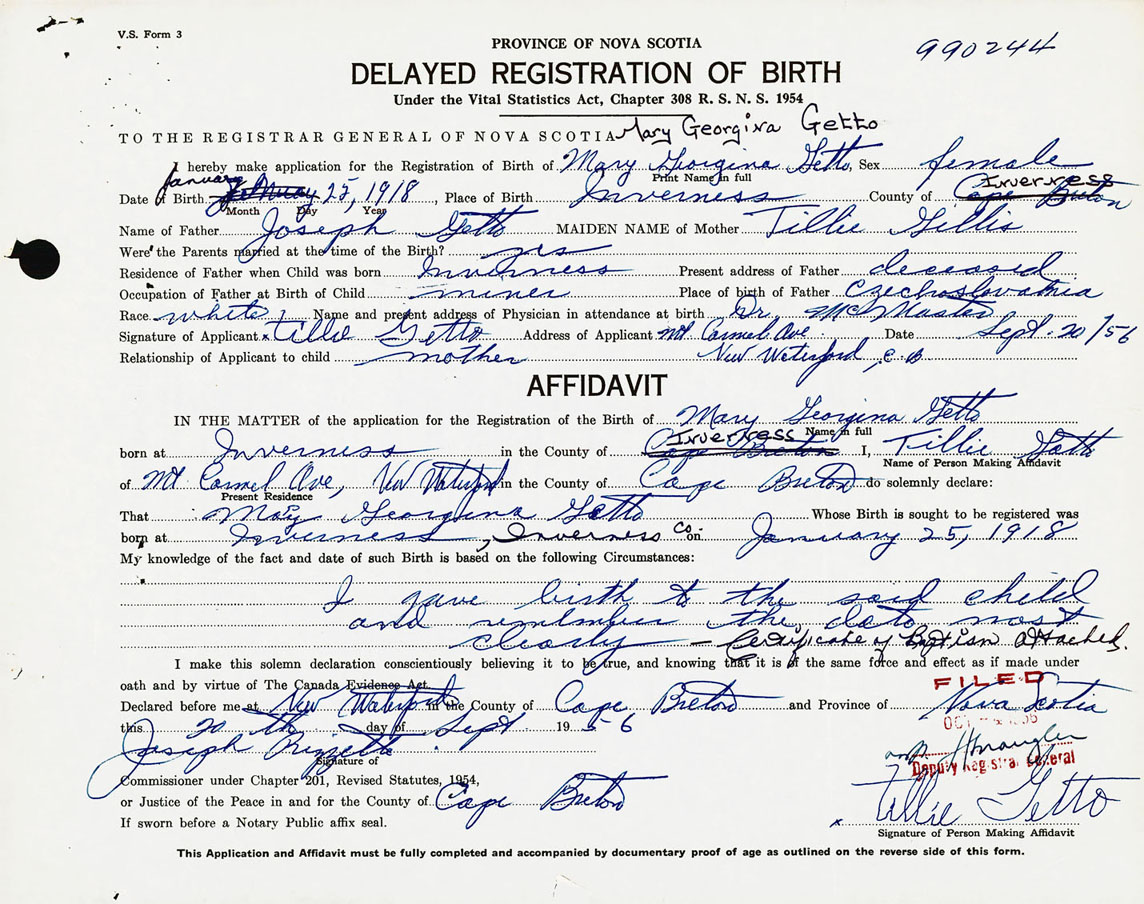 V.S. Form 3
990244
PROVINCE OF NOVA SCOTIA
DELAYED REGISTRATION OF BIRTH
Under the Vital Statistics Act, Chapter 308 R. S. N. S. 1954
TO THE REGISTRAR GENERAL OF NOVA SCOTIA Mary Georgina Getto
I hereby make application for the Registration of Birth of Mary Georgina Getto, Sex female
Print Name in full
January Inverness
Date of Birth 25, 1918, Place of Birth Inverness County of Breton
Month Day Year
Name of Father Joseph Getto MAIDEN NAME of Mother Tillie Gillis
Were the Parents married at the time of the Birth? yes
Residence of Father when Child was born Inverness Present address of Father deceased
Occupation of Father at Birth of Child miner Place of birth of Father Czechoslovakia
Race white, Name and present address of Physician in attendance at birth Dr. McMaster
Signature of Applicant x Tillie Getto Address of Applicant Mt. Carmel Ave. Date Sept. 20/56
Relationship of Applicant to child mother New Waterford, C. B
AFFIDAVIT
IN THE MATTER of the application for the Registration of the Birth of Mary Georgina Getto
Name in full
Inverness
born at Inverness in the County of Cape Breton I, Tillie Getto
Name of Person Making Affidavit
of Mt Carmel Ave, New Waterford in the County of Cape Breton do solemnly declare:
Present Residence
That Mary Georgina Getto Whose Birth is sought to be registered was
born at Inverness, Inverness Co. on January 25, 1918
My knowledge of the fact and date of such Birth is based on the following Circumstances:
I gave birth to the said child
and remember the date most
clearly — Certificate of Baptism attached.
I make this solemn declaration conscientiously believing it to be true, and knowing that it is of the same force and effect as if made under
oath and by virtue of The Canada Evidence Act.
FILED
Declared before me at New Waterford in the County of Cape Breton and Province of Nova Scotia
this 20 th day of Sept 1956
OCT 1956
Joseph
Signature of
Deputy Registrar General
Commissioner under Chapter 201, Revised Statutes, 1954,
or Justice of the Peace in and for the County of Cape Breton
x Tillie Getto
If sworn before a Notary Public affix seal.
Signature of Person Making Affidavit
This Application and Affidavit must be fully completed and accompanied by documentary proof of age as outlined on the reverse side of this form.